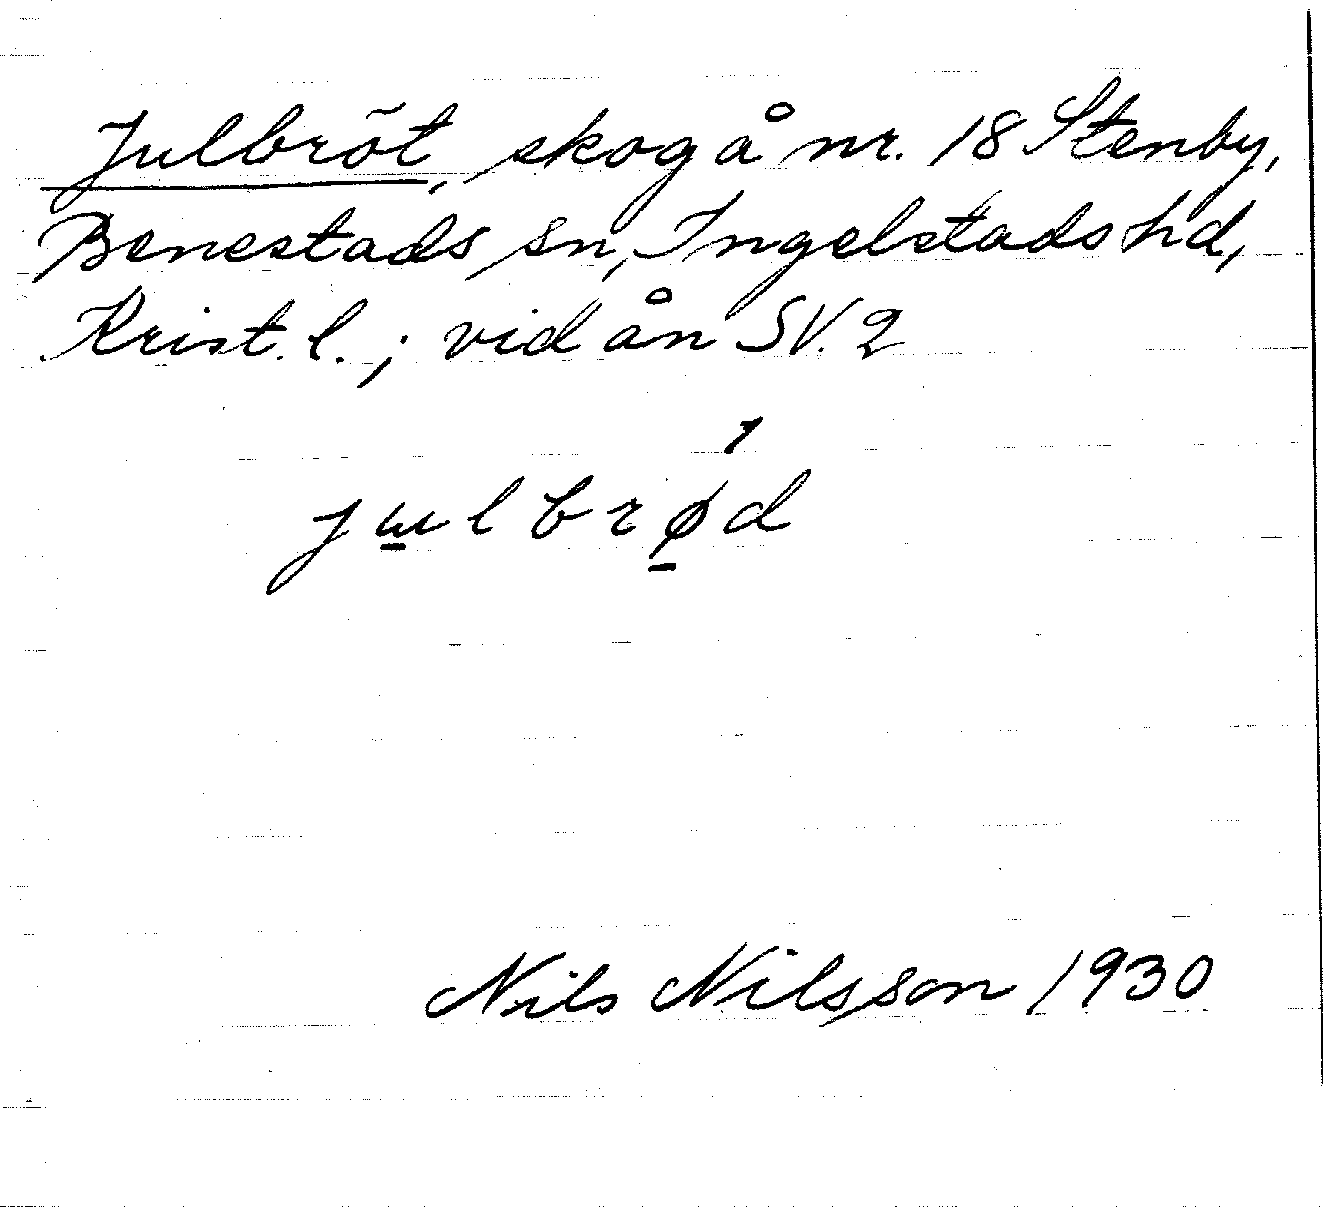 Julbröt, skog å nr. 18 Stenby,
Benestads sn, Ingelstads hd,
Krist. l.; vid ån SV. 2
jɯ̱lbrǿ̱d
Nils Nilsson 1930